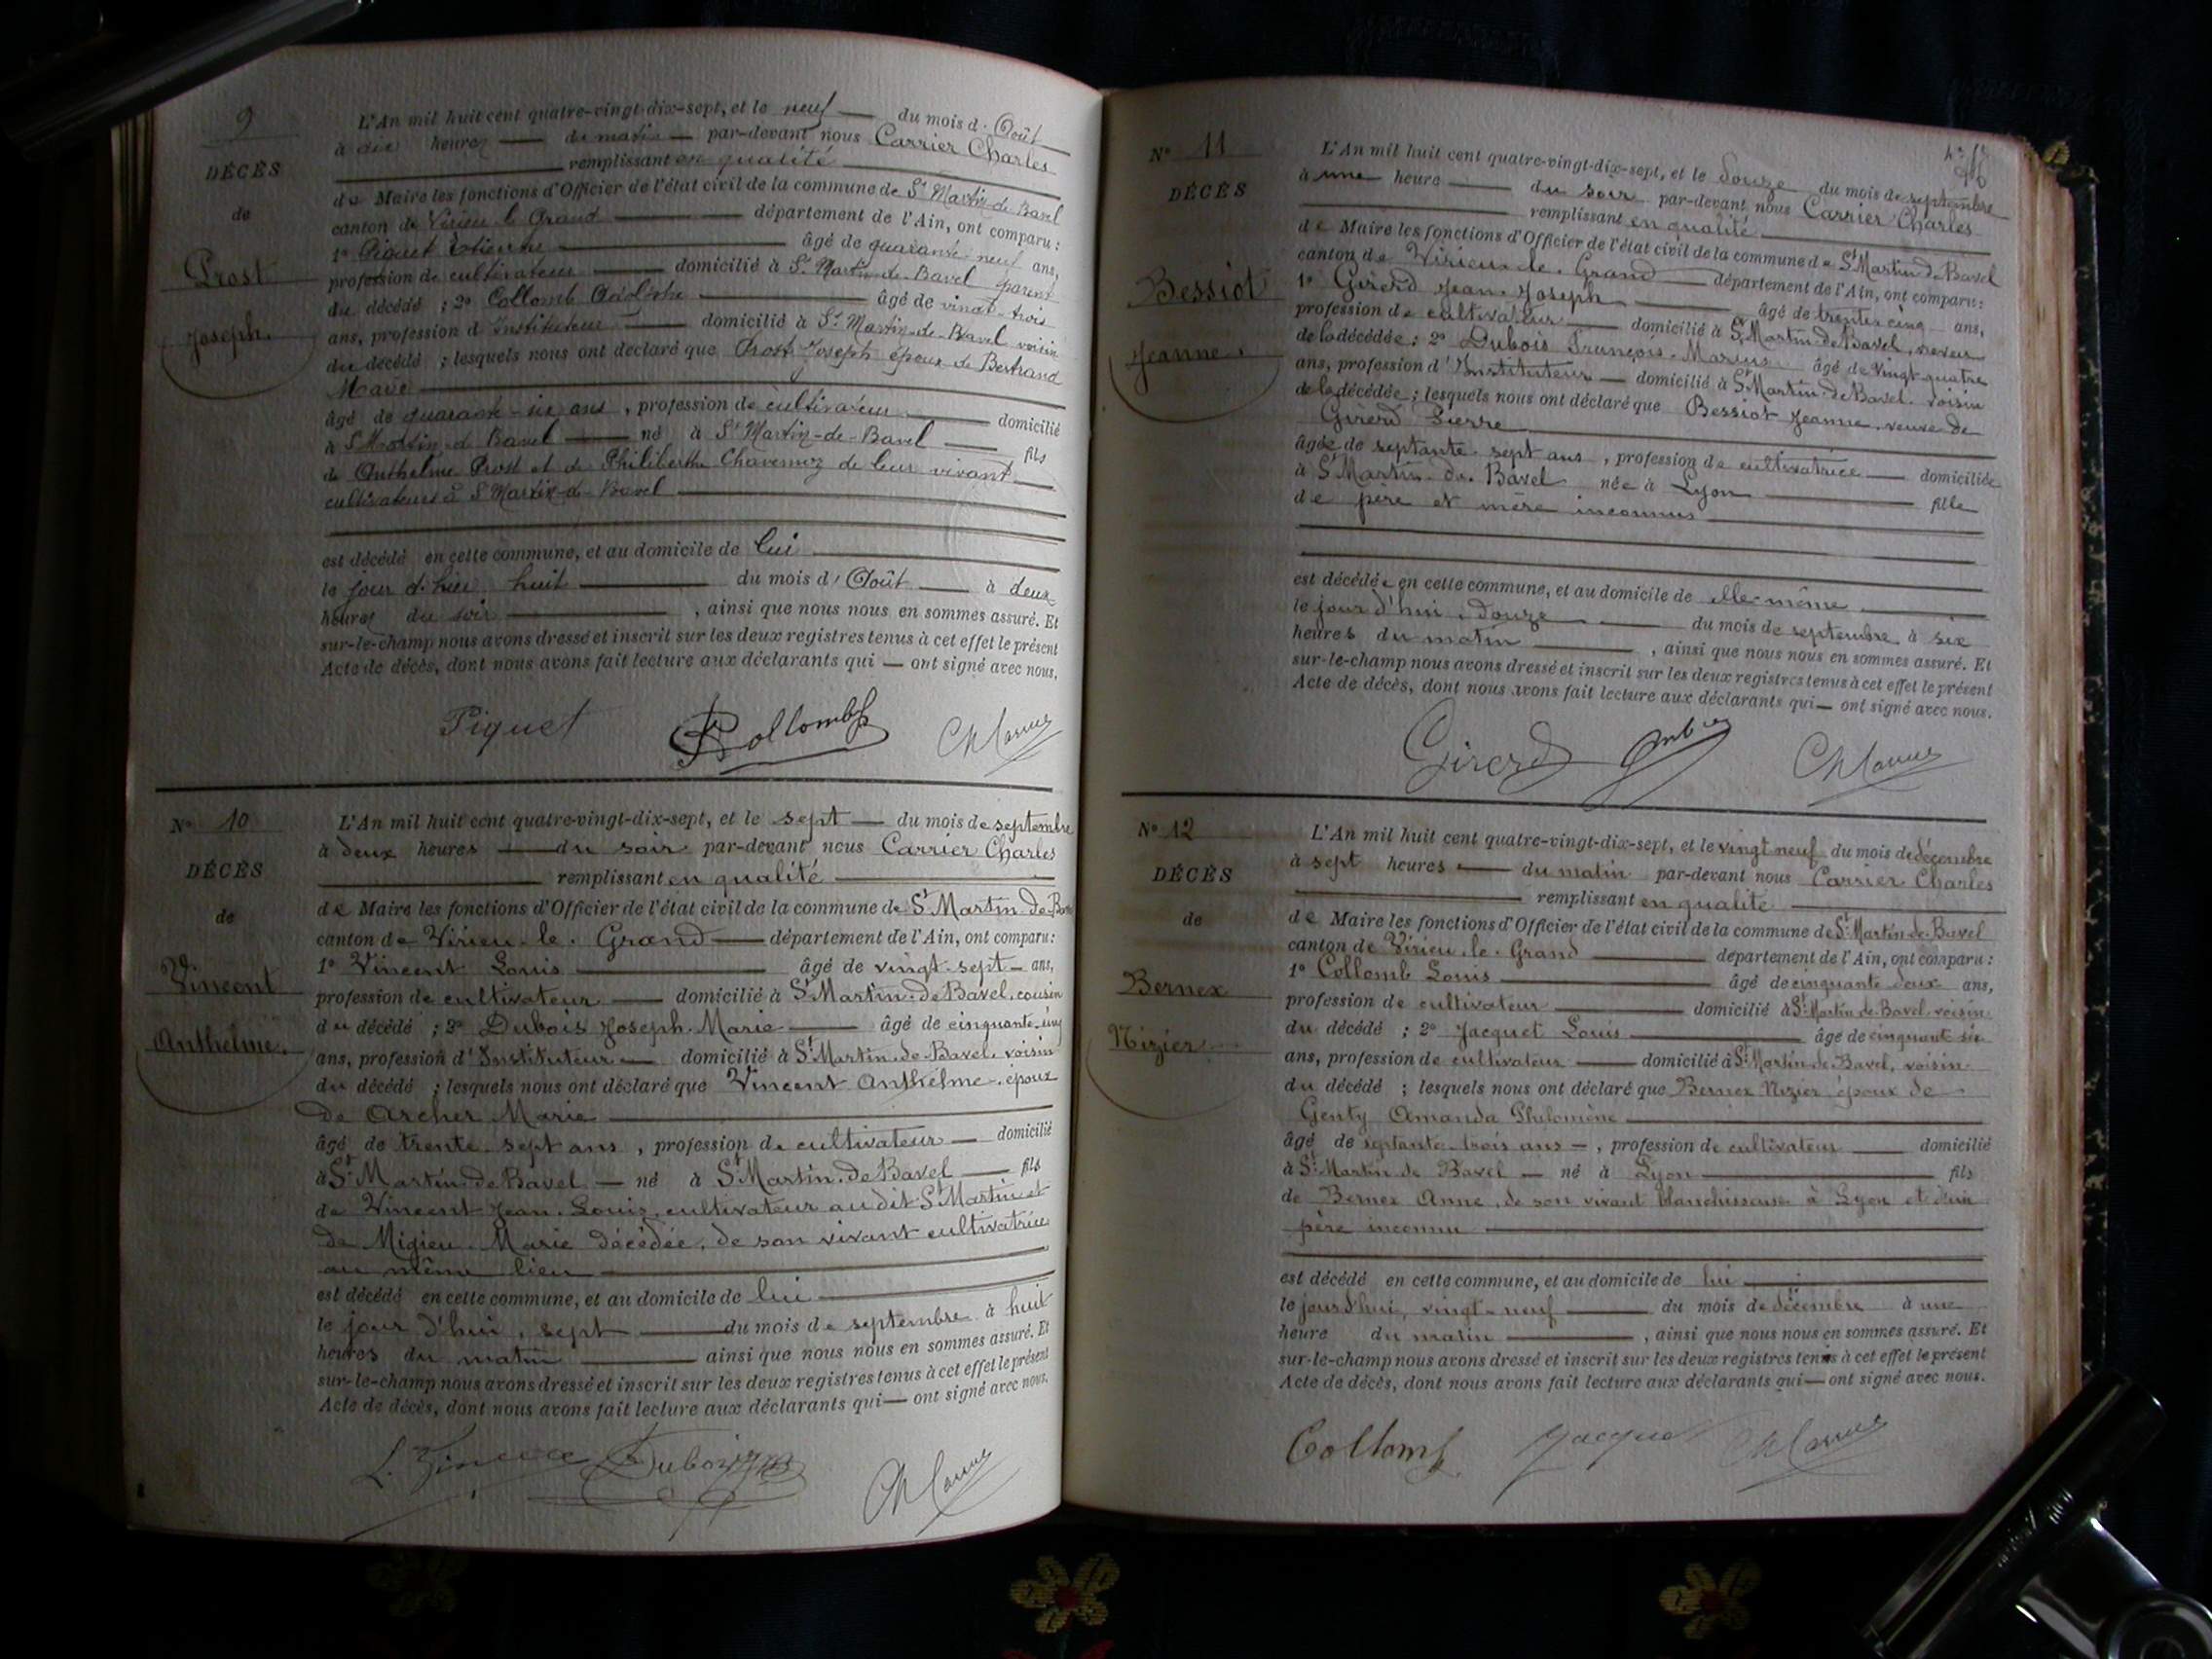 9
DÉCÈS
de
Prost
Joseph.
L'An mil huit cent quatre-vingt-dix-sept, et le neuf — du mois d' Août
à dix heures — du matin — par-devant nous Carrier Charles
remplissant en qualité
de Maire les fonctions d'Officier de l'état civil de la commune de St Martin-de-Bavel
canton de Virieu le Grand — département de l'Ain, ont comparu :
1° Piguet Etienne — âgé de quarante neuf ans,
profession de cultivateur — domicilié à St Martin-de-Bavel parent
du décédé ; 2° Collomb Adolphe — âgé de vingt-trois
ans, profession d'Instituteur — domicilié à St Martin-de-Bavel voisin
du décédé ; lesquels nous ont déclaré que Prost Joseph époux de Bertrand
âgé de quarante-six ans, profession de cultivateur — domicilié
à St Martin-de Bavel — né à St Martin-de-Bavel — fils
de Anthelme Prost et de Philiberthe de leur vivant
cultivateurs à St Martin-de-Bavel
est décédé en cette commune, et au domicile de lui
le jour d'hier huit — du mois d'Août — à deux
heures du soir — , ainsi que nous nous en sommes assuré. Et
sur-le-champ nous avons dressé et inscrit sur les deux registres tenus à cet effet le présent
Acte de décès, dont nous avons fait lecture aux déclarants qui — ont signé avec nous.
Piguet Collomb Ch Carrier
N° 10
DÉCÈS
de
Vincent
Anthelme.
L'An mil huit cent quatre-vingt-dix-sept, et le sept — du mois de septembre
à deux heures — du soir par-devant nous Carrier Charles
remplissant en qualité
de Maire les fonctions d'Officier de l'état civil de la commune de St Martin-de-Bavel
canton de Virieu-le-Grand — département de l'Ain, ont comparu :
1° Vincent Louis — âgé de vingt-sept — ans,
profession de cultivateur — domicilié à St Martin-de Bavel, cousin
du décédé ; 2° Dubois Joseph-Marie — âgé de cinquante-cinq
ans, profession d'Instituteur — domicilié à St Martin-de-Bavel, voisin
du décédé ; lesquels nous ont déclaré que Vincent Anthelme, époux
de Archer Marie
âgé de trente-sept ans, profession de cultivateur — domicilié
à St Martin de Bavel — né à St Martin-de Bavel — fils
de Vincent Jean-Louis, cultivateur au dit St Martin et
de Migieu Marie décédée, de son vivant cultivatrice
au même lieu
est décédé en cette commune, et au domicile de lui
le jour d'hui, sept — du mois de septembre à huit
heures du matin — ainsi que nous nous en sommes assuré. Et
sur-le-champ nous avons dressé et inscrit sur les deux registres tenus à cet effet le présent
Acte de décès, dont nous avons fait lecture aux déclarants qui — ont signé avec nous.
L. Vincent Dubois Ch Carrier
N° 11
DÉCÈS
Bessiot
Jeanne.
L'An mil huit cent quatre-vingt-dix-sept, et le douze du mois de septembre
à une heure — du soir par-devant nous Carrier Charles
remplissant en qualité
de Maire les fonctions d'Officier de l'état civil de la commune de St Martin de Bavel
canton de Virieu-le-Grand — département de l'Ain, ont comparu :
1° Girerd Jean-Joseph — âgé de trente cinq ans,
profession de cultivateur — domicilié à St Martin de Bavel, neveu
de la décédée ; 2° Dubois François-Marius âgé de vingt-quatre
ans, profession d'Instituteur — domicilié à St Martin-de Bavel. voisin
de la décédée ; lesquels nous ont déclaré que Bessiot Jeanne, veuve de
Girerd Pierre
âgée de septante-sept ans, profession de cultivatrice — domiciliée
à St Martin-de-Bavel née à Lyon — fille
de père et mère inconnus
est décédée en cette commune, et au domicile de elle-même
le jour d'hui, douze — du mois de septembre à six
heures du matin — , ainsi que nous nous en sommes assuré. Et
sur-le-champ nous avons dressé et inscrit sur les deux registres tenus à cet effet le présent
Acte de décès, dont nous avons fait lecture aux déclarants qui — ont signé avec nous.
Girerd Ch Carrier
N° 12
DÉCÈS
de
Bernex
Nizier.
L'An mil huit cent quatre-vingt-dix-sept, et le vingt neuf du mois de décembre
à sept heures — du matin par-devant nous Carrier Charles
remplissant en qualité
de Maire les fonctions d'Officier de l'état civil de la commune de St Martin-de-Bavel
canton de Virieu-le-Grand — département de l'Ain, ont comparu :
1° Collomb Louis — âgé de cinquante deux ans,
profession de cultivateur — domicilié à St Martin-de-Bavel, voisin
du décédé ; 2° Jacquet Louis — âgé de cinquante six
ans, profession de cultivateur — domicilié à St Martin-de Bavel, voisin
du décédé ; lesquels nous ont déclaré que Bernex Nizier époux de
Genty Amanda Philomène
âgé de septante-trois ans — , profession de cultivateur — domicilié
à St Martin de Bavel — né à Lyon — fils
de Bernex Anne, de son vivant blanchisseuse à Lyon et d'un
père inconnu
est décédé en cette commune, et au domicile de lui
le jour d'hui, vingt-neuf — du mois de décembre à une
heure du matin — , ainsi que nous nous en sommes assuré. Et
sur-le-champ nous avons dressé et inscrit sur les deux registres tenus à cet effet le présent
Acte de décès, dont nous avons fait lecture aux déclarants qui — ont signé avec nous.
Collomb Jacquet Ch Carrier